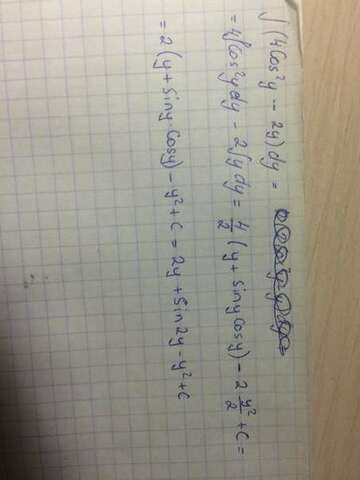 ∫(4cos²y - 2y)dy =
= 4∫cos²y dy - 2∫y dy = 4/2 (y + siny cosy) - 2 y²/2 + C =
= 2(y + siny·cosy) - y² + C = 2y + sin2y - y² + C